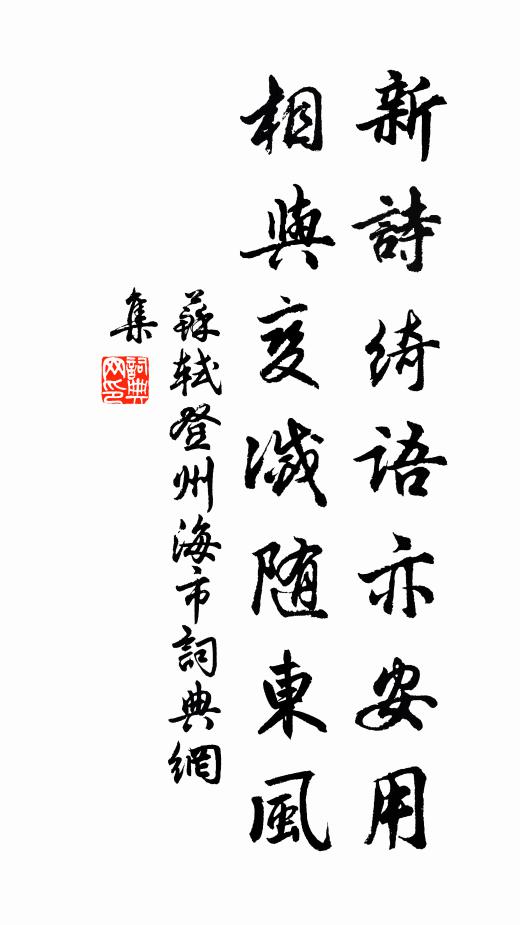 新詩綺語亦安用
相與变滅随東風
蘇軾登州海市詞典網
集
詞典網印